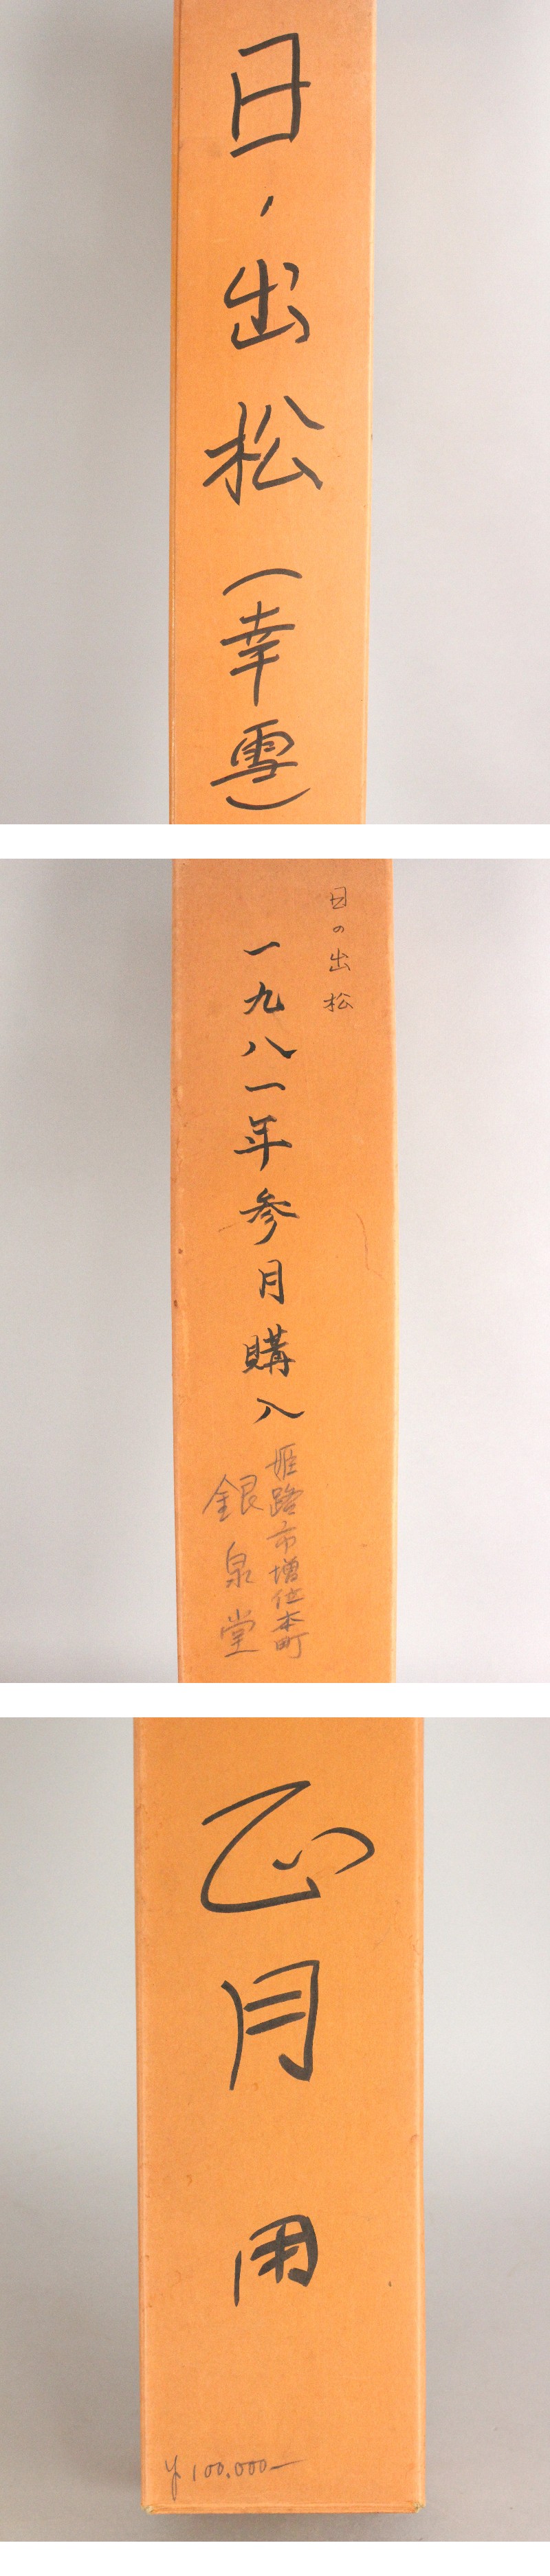 日ノ出松（幸雪）
日の出松
一九八一年参月購入
姫路市増位本町
銀泉堂
正月用
¥100.000—